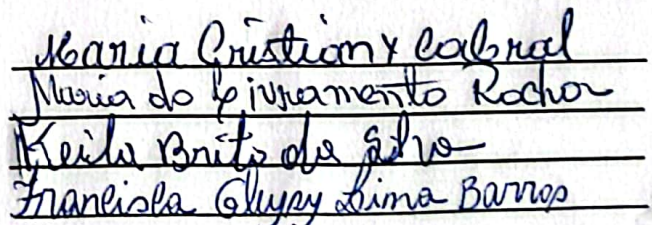 Maria Cristiany Cabral
Maria do Livramento Rocha
Keila Brito da Silva
Francisca Lima Barros